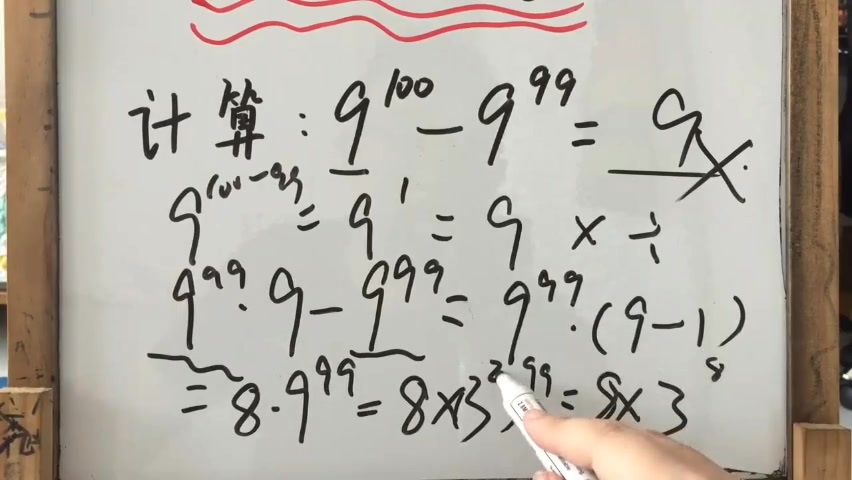 计算: 9¹⁰⁰ - 9⁹⁹ = 9
9¹⁰⁰⁻⁹⁹ = 9¹ = 9 × ÷
9⁹⁹·9 - 9⁹⁹ = 9⁹⁹·(9-1)
8
= 8·9⁹⁹ = 8×(3²)⁹⁹ = 8×3